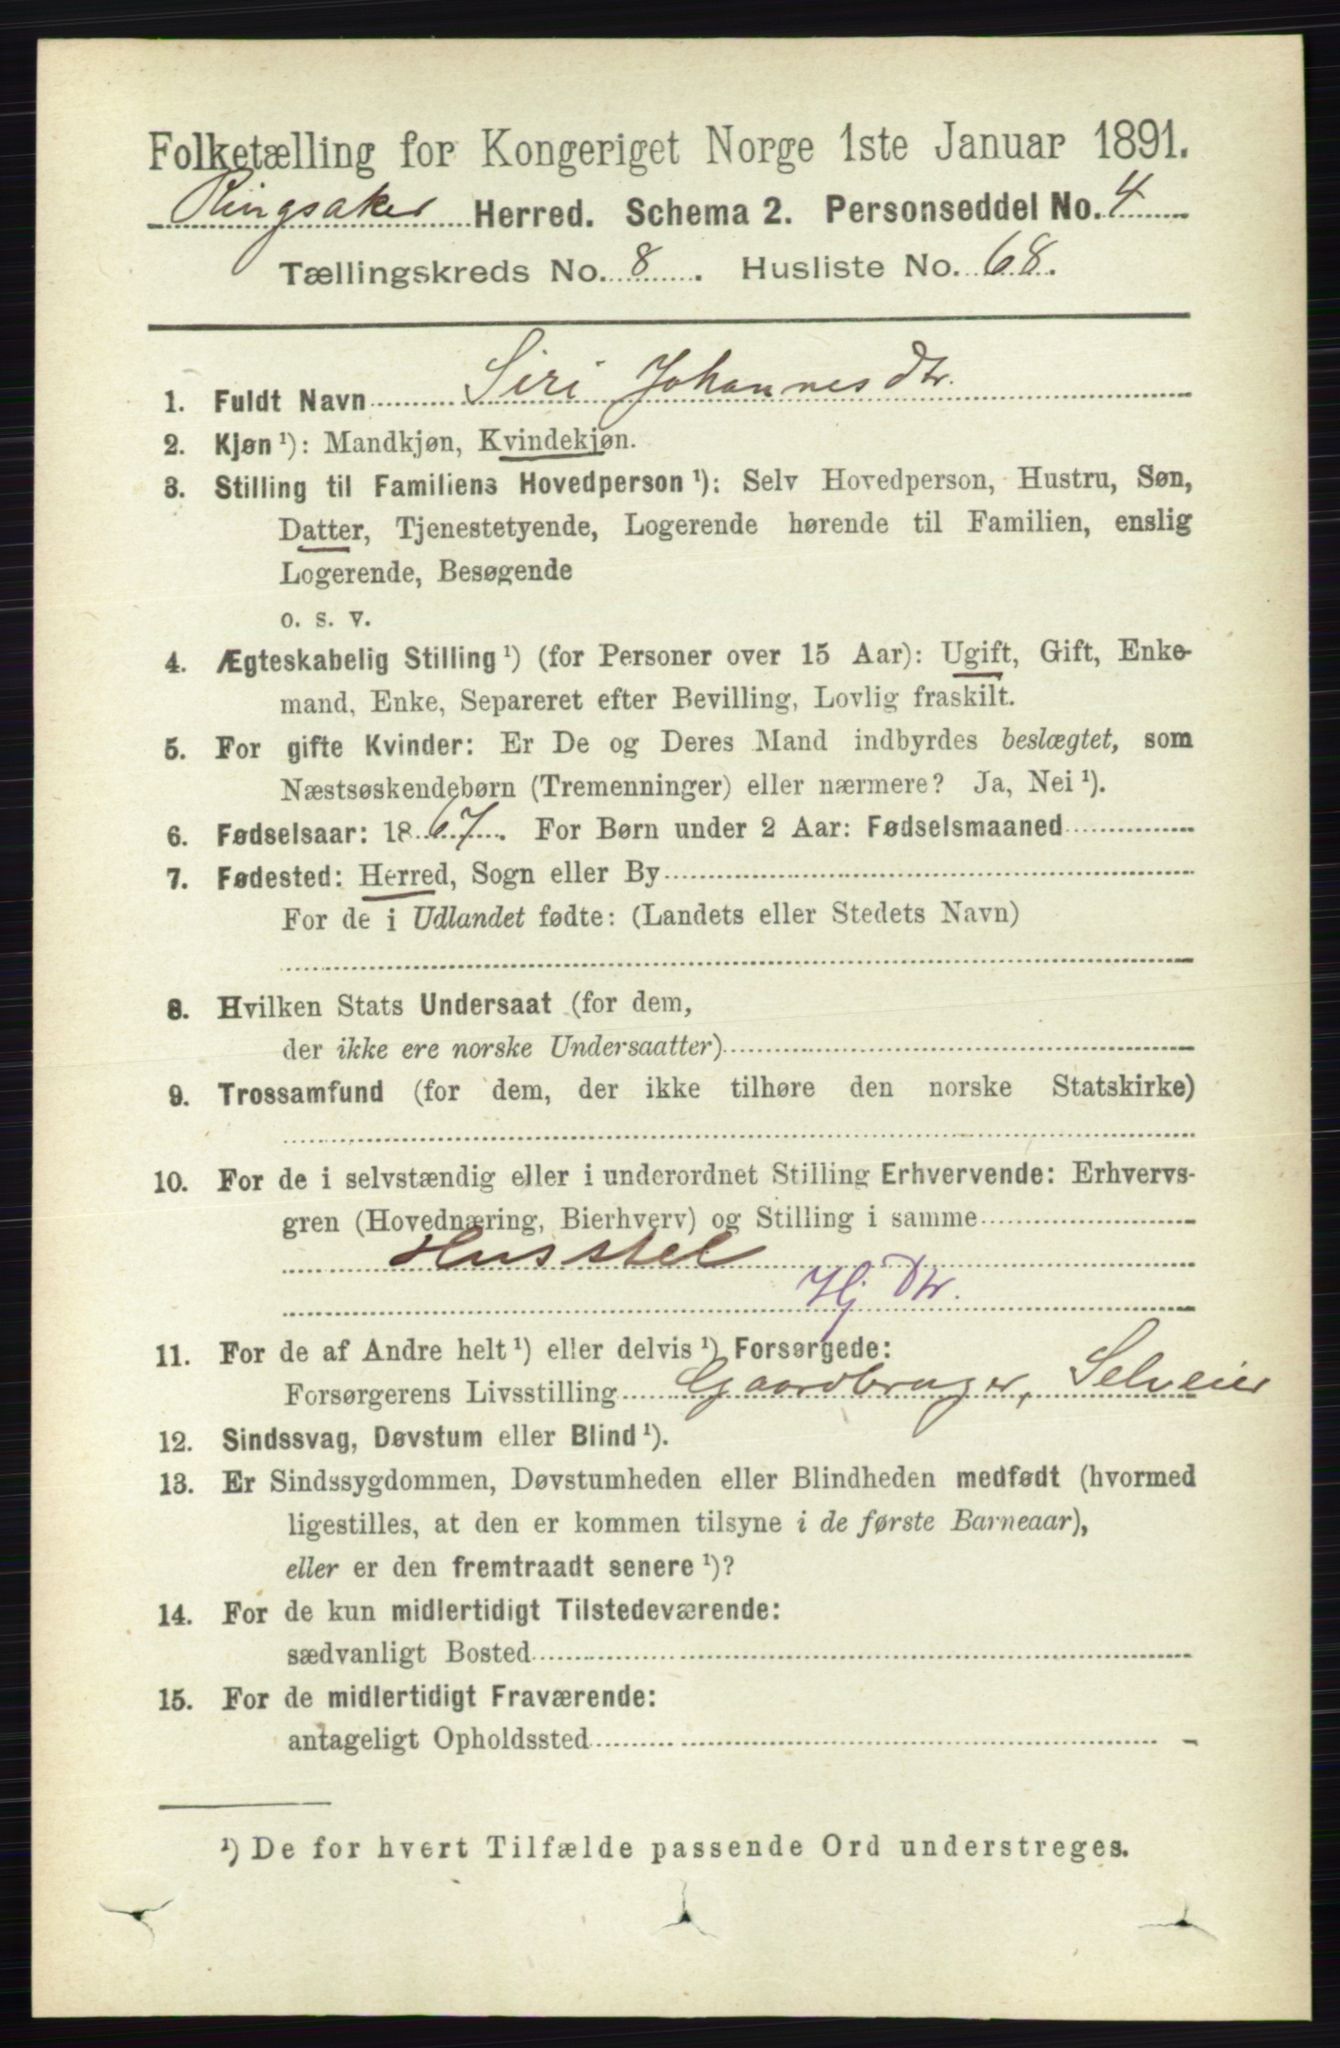 Folketælling for Kongeriget Norge 1ste Januar 1891.
Ringsaker Herred. Schema 2. Personseddel No. 4
Tællingskreds No. 8. Husliste No. 68.
1. Fuldt Navn Siri Johannesdtr.
2. Kjøn ¹): Mandkjøn, Kvindekjøn.
3. Stilling til Familiens Hovedperson ¹): Selv Hovedperson, Hustru, Søn,
Datter, Tjenestetyende, Logerende hørende til Familien, enslig
Logerende, Besøgende
o. s. v.
4. Ægteskabelig Stilling ¹) (for Personer over 15 Aar): Ugift, Gift, Enke-
mand, Enke, Separeret efter Bevilling, Lovlig fraskilt.
5. For gifte Kvinder: Er De og Deres Mand indbyrdes beslægtet, som
Næstsøskendebørn (Tremenninger) eller nærmere? Ja, Nei ¹).
6. Fødselsaar: 1867. For Børn under 2 Aar: Fødselsmaaned
7. Fødested: Herred, Sogn eller By
For de i Udlandet fødte: (Landets eller Stedets Navn)
8. Hvilken Stats Undersaat (for dem,
der ikke ere norske Undersaatter)
9. Trossamfund (for dem, der ikke tilhøre den norske Statskirke)
10. For de i selvstændig eller i underordnet Stilling Erhvervende: Erhvervs-
gren (Hovednæring, Bierhverv) og Stilling i samme
Husstel
Hj Dtr.
11. For de af Andre helt ¹) eller delvis ¹) Forsørgede:
Forsørgerens Livsstilling Gaardbruger, Selveier
12. Sindssvag, Døvstum eller Blind ¹).
13. Er Sindssygdommen, Døvstumheden eller Blindheden medfødt (hvormed
ligestilles, at den er kommen tilsyne i de første Barneaar),
eller er den fremtraadt senere ¹)?
14. For de kun midlertidigt Tilstedeværende:
sædvanligt Bosted
15. For de midlertidigt Fraværende:
antageligt Opholdssted
¹) De for hvert Tilfælde passende Ord understreges.